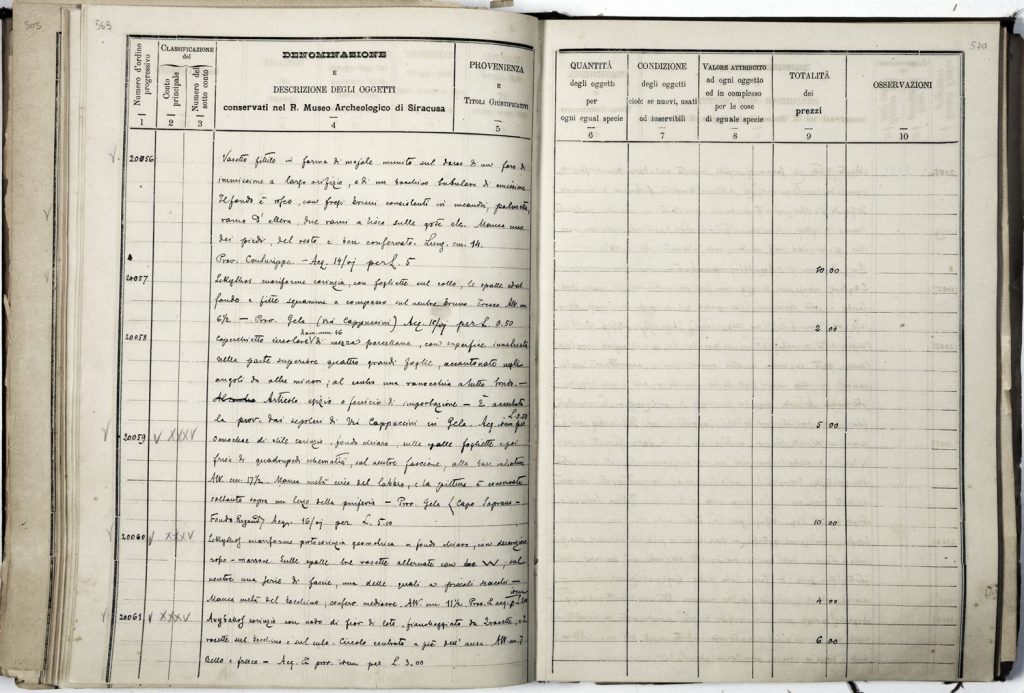 505
569
Numero d'ordine progressivo
CLASSIFICAZIONE del
Conto principale
Numero del sotto conto
DENOMINAZIONE
E
DESCRIZIONE DEGLI OGGETTI
conservati nel R. Museo Archeologico di Siracusa
PROVENIENZA
E
TITOLI GIUSTIFICATIVI
1 2 3 4 5
20056 Vasetto fittile in forma di majale munito sul dorso di un foro di
immissione a largo orifizio, e di un becchino tubulare di emissione.
Il fondo è roseo, con fregi bruni consistenti in meandri, palmette,
ramo d'ellera, due rami a lisca sulle gote etc. Manca uno
dei piedi, del resto è ben conservato. Lung. cm. 14.
Prov. Centuripe. - Acq. 14/ by per L. 5
20057 Lekythos cuoriforme corinzia, con fogliette sul collo, le spalle ed al
fondo e fitte squamme a compasso sul ventre bruno.
6½ - Prov. Gela (Via Cappuccini) Acq. per L. 0.50
20058 Coperchietto circolare di mezza porcellana, con superficie
nella parte superiore quattro grandi foglie, accantonate negli
angoli da altre minori; al centro una ranocchia a tutto tondo. -
Articolo egizio o fenicio di importazione - È accertata
la prov. dai sepolcri di Via Cappuccini in Gela. Acq. idem per L. 0.50
20059 V XXX V Oenochoe di stile corinzio, fondo chiaro, sulle spalle fogliette e poi
fregio di quadrupedi schematici, sul ventre fascione, alla base radiature
Alt. cm. 17½. Manca metà circa del labbro, e la pittura è conservata
soltanto sopra un terzo della periferia - Prov. Gela (Capo Soprano -
Fondo ) Acq. 16/ per L. 5.00
20060 V XXX V Lekythos cuoriforme protocorinzia geometrica a fondo chiaro, con decorazione
rosso-marrone. Sulle spalle tre rosette alternate con ; sul
ventre una serie di fasce, una delle quali a piccoli scacchi -
Manca metà del becchino; conserv. mediocre. Alt. cm 11½. Prov. e acq. idem
20061 V XXX V Aryballos corinzio con nodo di fior di loto, fiancheggiato da 2 rosette, e 2
rosette sul becchino e sul culo. Circolo centrato a piè dell'ansa. Alt. cm. 7
Bello e fresco - Acq. e prov. idem per L. 3.00
570
QUANTITÀ
degli oggetti
per
ogni egual specie
6
CONDIZIONE
degli oggetti
cioè: se nuovi, usati
od inservibili
7
VALORE ATTRIBUITO
ad ogni oggetto
ed in complesso
per le cose
di eguale specie
8
TOTALITÀ
dei
prezzi
9
OSSERVAZIONI
10
20 00
2 00
5 00
10 00
4 00
6 00